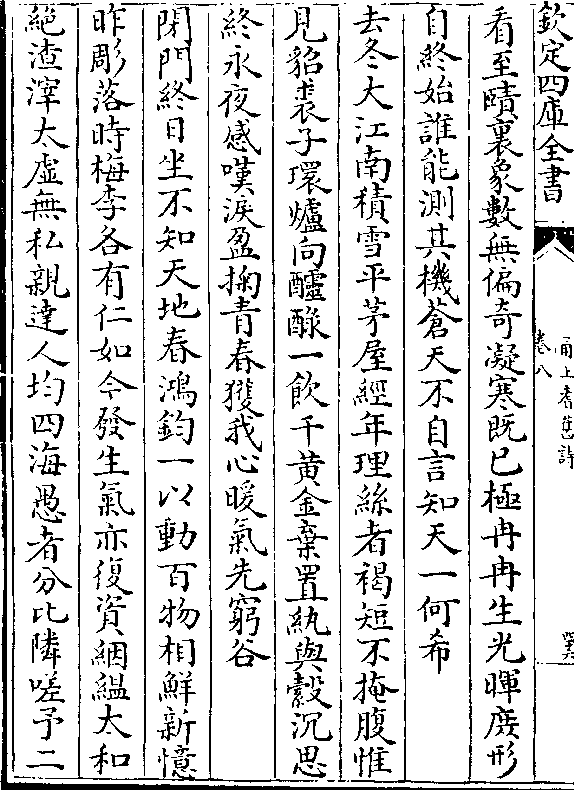 欽定四庫全書
甬上耆舊詩
卷八
看至賾裏象數無偏奇凝寒既已極冉冉生光暉庶形
自終始誰能測其機蒼天不自言知天一何希
去冬大江南積雪平茅屋經年理絲者褐短不掩腹惟
見貂裘子環爐向醽醁一飲千黄金棄置紈與縠沉思
終永夜感嘆淚盈掬青春獲我心暖氣先窮谷
閉門終日坐不知天地春鴻鈞一以動百物相鮮新憶
昨彫落時梅李各有仁如今發生氣亦復資絪縕太和
絶渣滓太虚無私親達人均四海愚者分比隣嗟予二